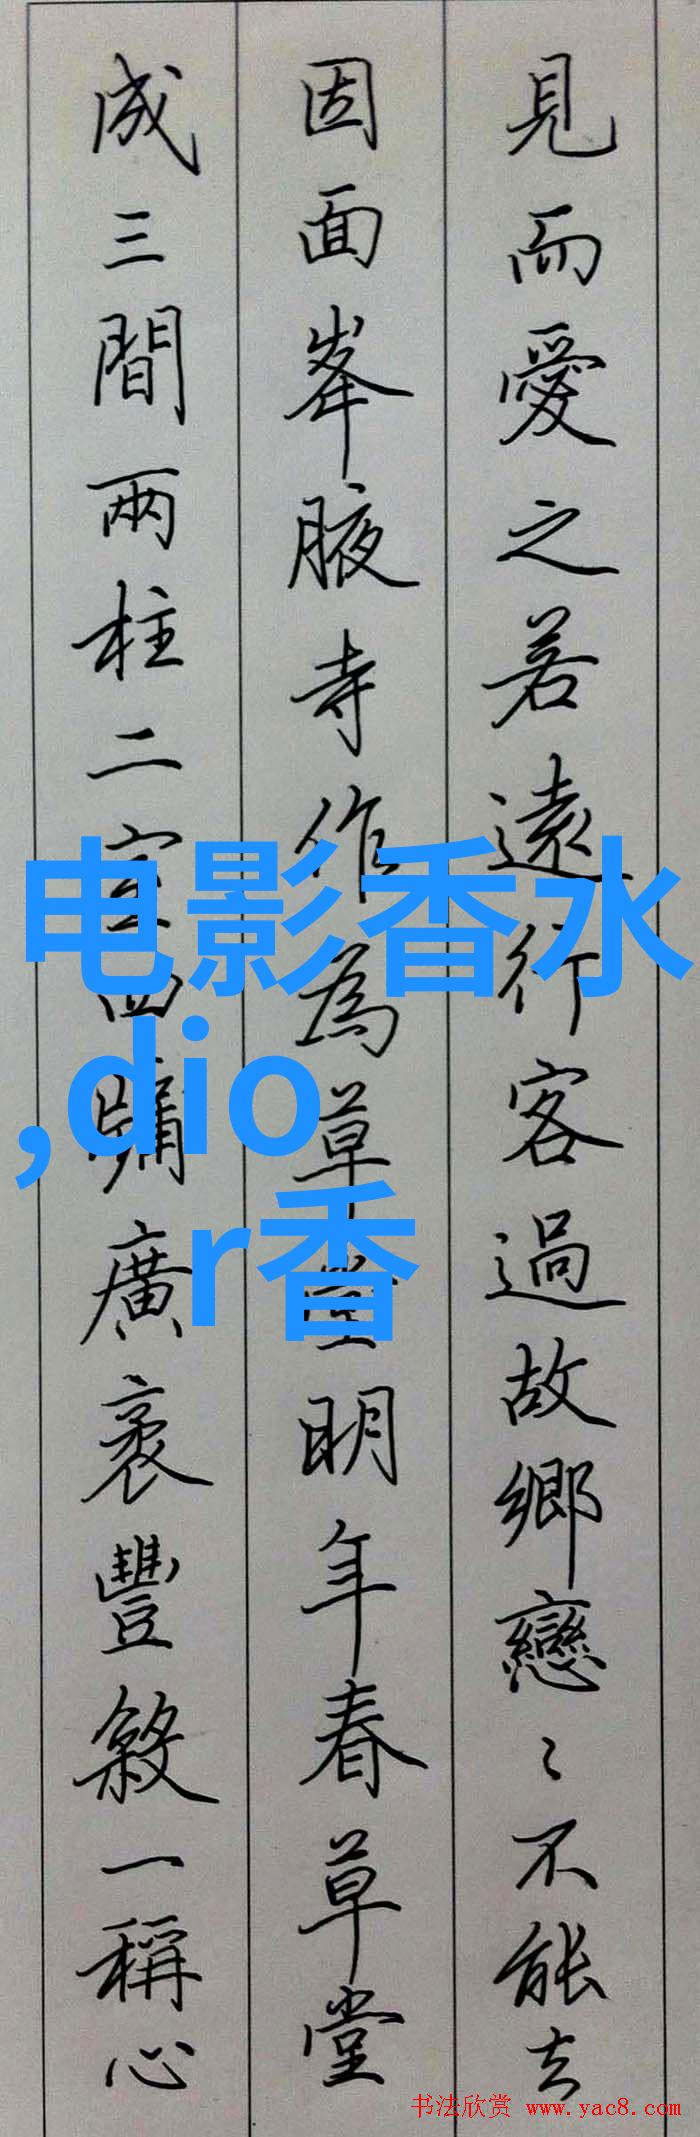 見而愛之若遠行客過故鄉戀〻不能去
因面峯腋寺作為草堂明年春草堂
成三間兩柱二室四牖廣袤豐殺一稱心
电影香水
,dio
r香
书法欣赏 www.yac8.com